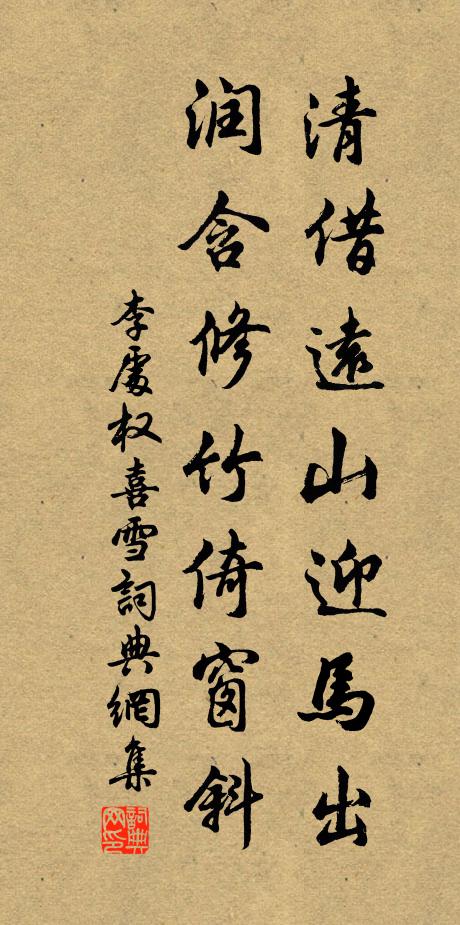 清借遠山迎馬出
润含修竹倚窗斜
李處权喜雪詞典網集
詞典网印